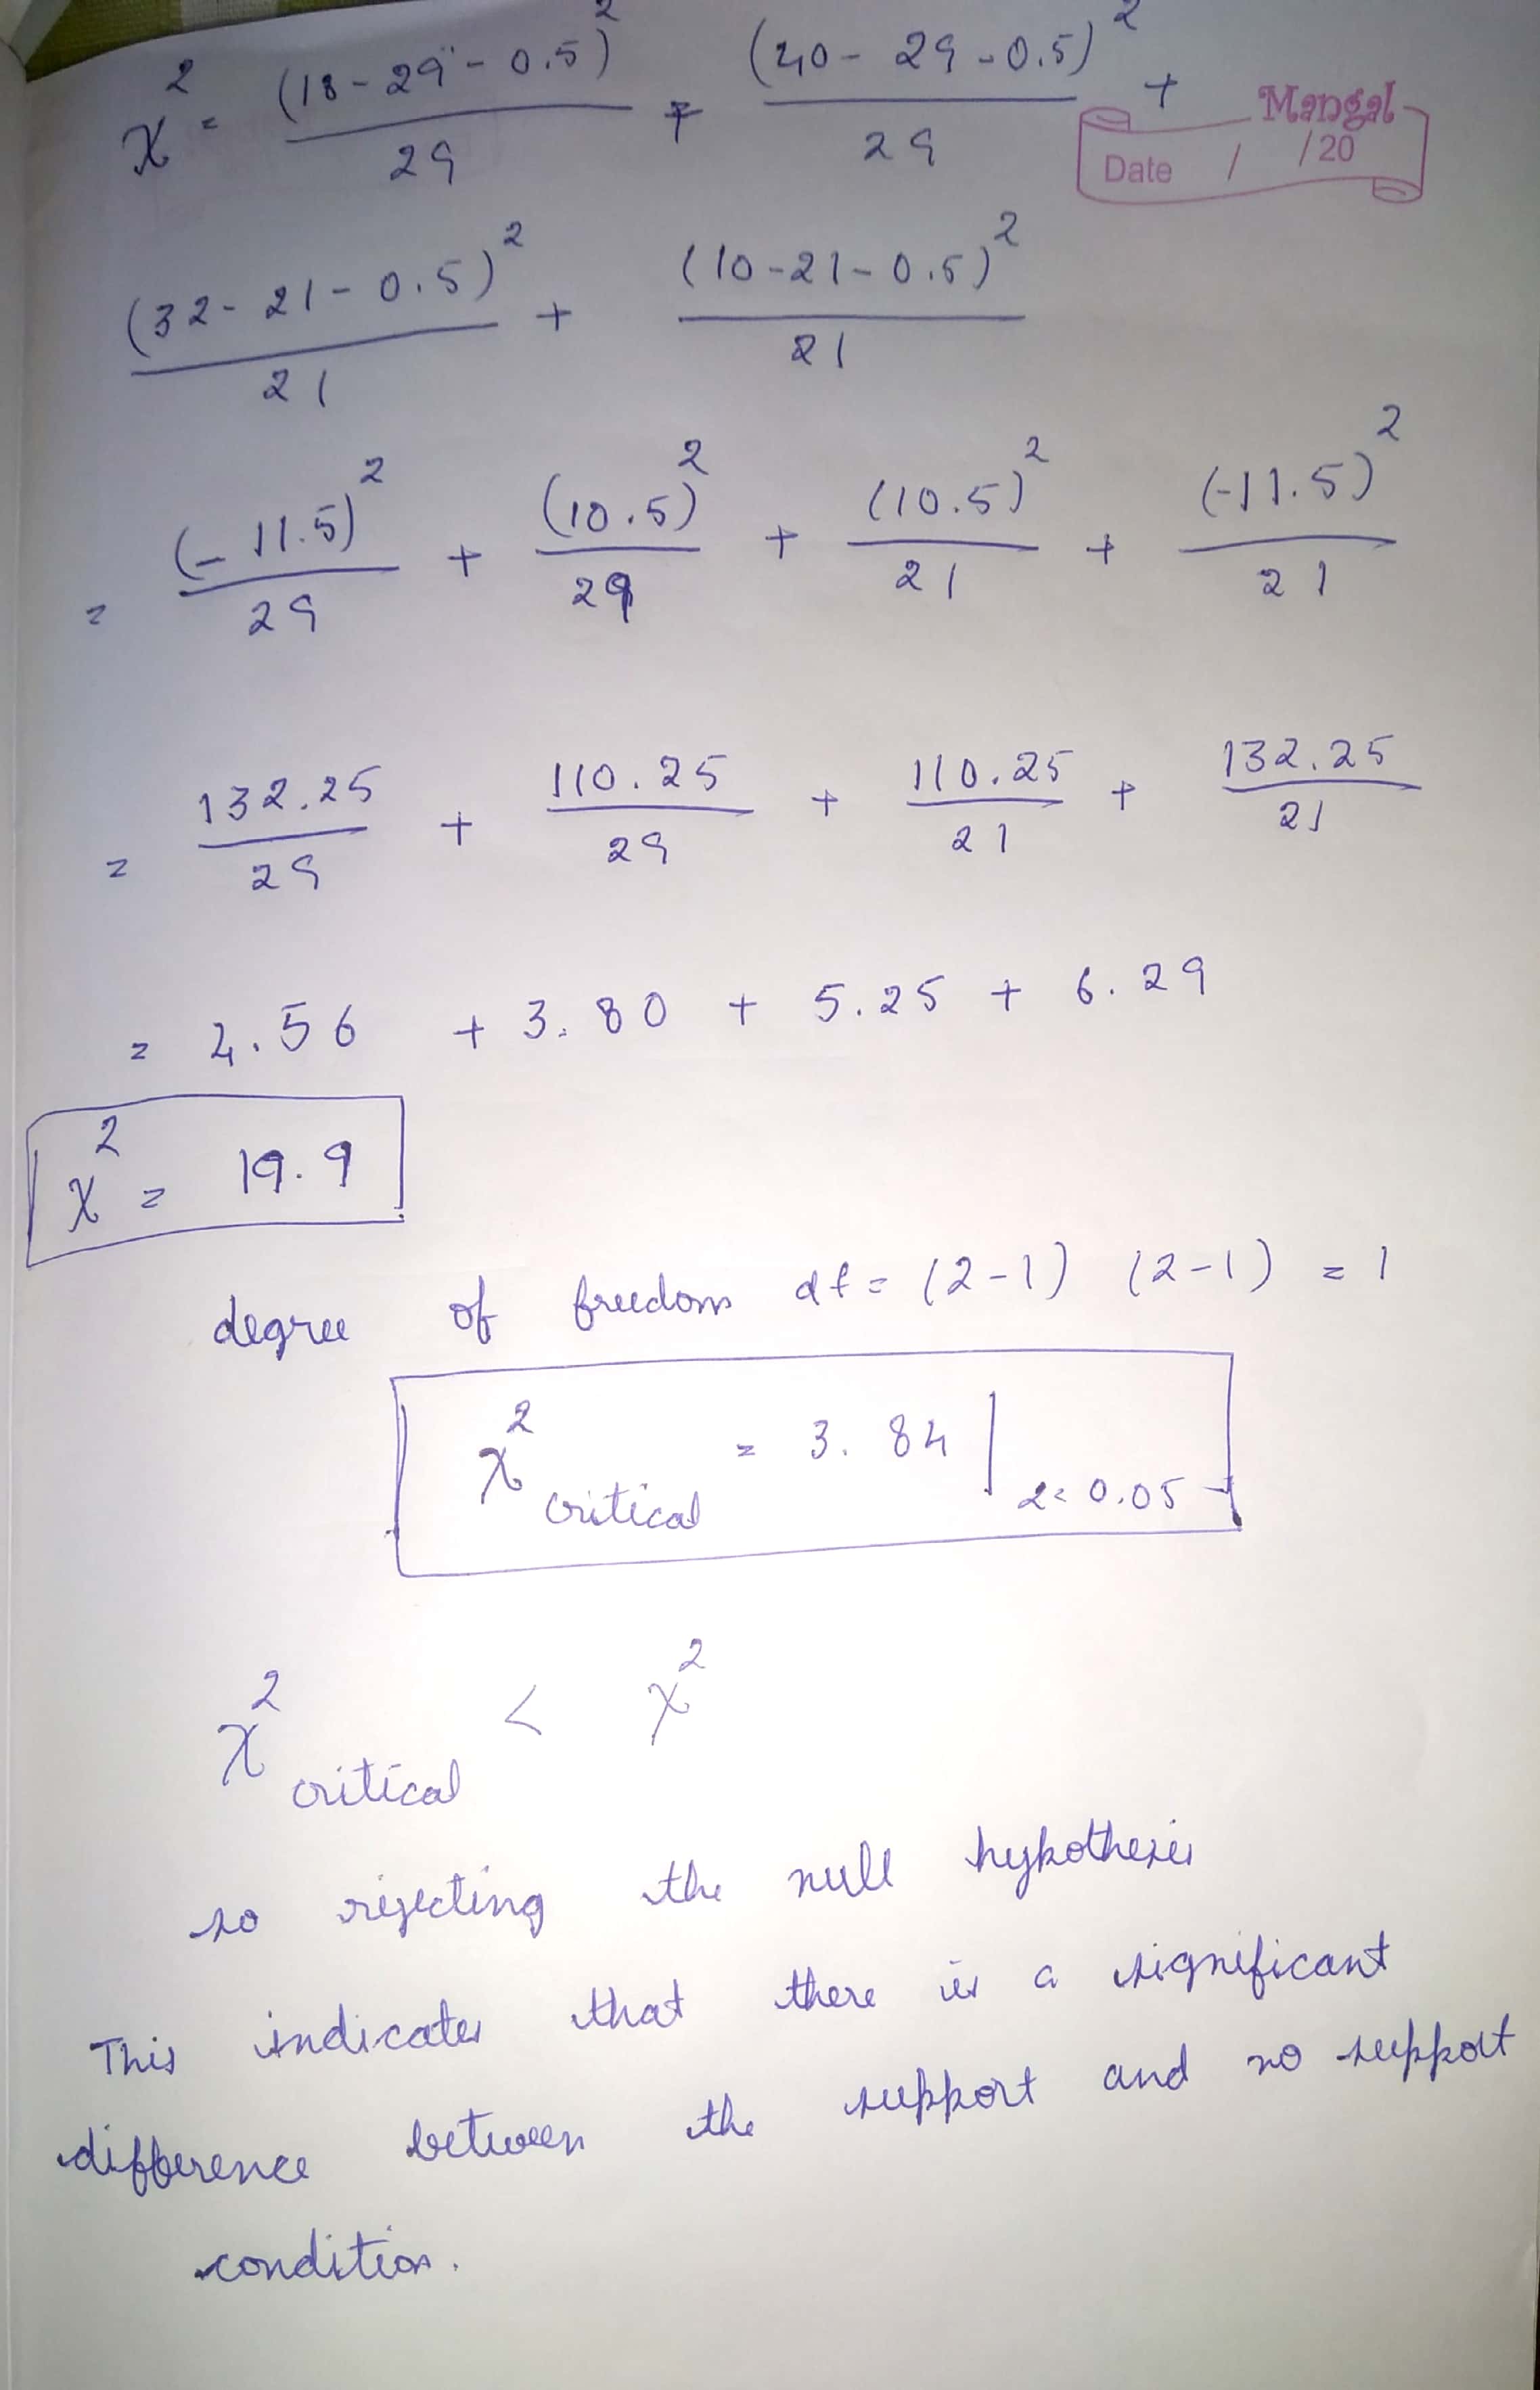 χ² = (18 - 29 - 0.5)² / 29 + (40 - 29 - 0.5)² / 29 +
Mangal
Date / / 20
(32 - 21 - 0.5)² / 21 + (10 - 21 - 0.5)² / 21
= (-11.5)² / 29 + (10.5)² / 29 + (10.5)² / 21 + (-11.5)² / 21
= 132.25 / 29 + 110.25 / 29 + 110.25 / 21 + 132.25 / 21
= 4.56 + 3.80 + 5.25 + 6.29
χ² = 19.9
degree of freedom df = (2-1) (2-1) = 1
χ² critical = 3.84 | α = 0.05
χ² critical < χ²
so rejecting the null hypothesis
This indicates that there is a significant
difference between the support and no support
condition.